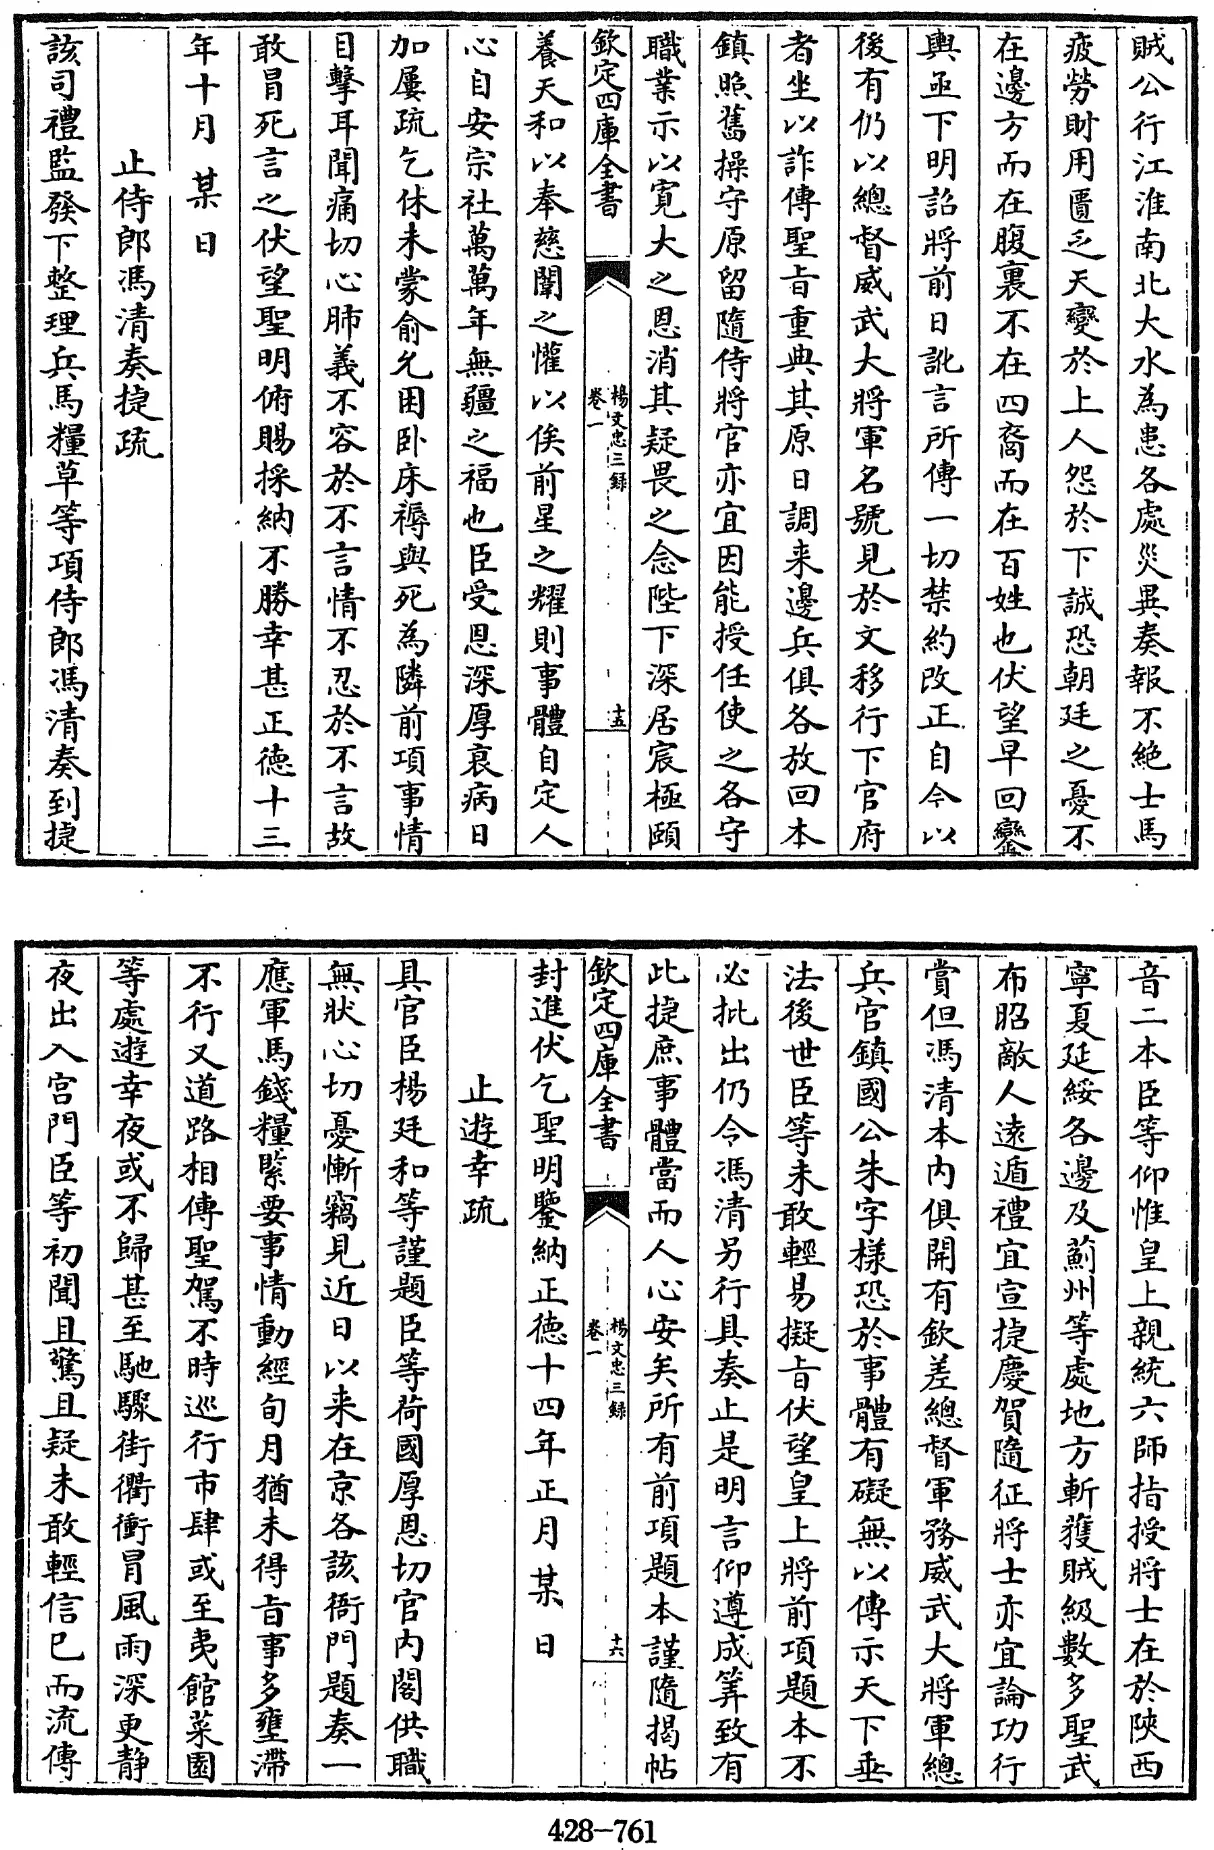 賊公行江淮南北大水為患各處災異奏報不絶士馬
疲勞財用匱乏天變於上人怨於下誠恐朝廷之憂不
在邊方而在腹裏不在四裔而在百姓也伏望早回鑾
輿亟下明詔將前日訛言所傳一切禁約改正自今以
後有仍以總督威武大將軍名號見於文移行下官府
者坐以詐傳聖旨重典其原日調来邊兵俱各放回本
鎮照舊操守原留隨侍將官亦宜因能授任使之各守
職業示以寛大之恩消其疑畏之念陛下深居宸極頤
欽定四庫全書
楊文忠三録
卷一
十五
養天和以奉慈闈之懽以俟前星之耀則事體自定人
心自安宗社萬萬年無疆之福也臣受恩深厚衰病日
加屢疏乞休未蒙俞允困卧床褥與死為隣前項事情
目擊耳聞痛切心肺義不容於不言情不忍於不言故
敢冒死言之伏望聖明俯賜採納不勝幸甚正徳十三
年十月某日
止侍郎馮清奏捷疏
該司禮監發下整理兵馬糧草等項侍郎馮清奏到捷
音二本臣等仰惟皇上親統六師指授將士在於陝西
寧夏延綏各邊及薊州等處地方斬獲賊級數多聖武
布昭敵人遠遁禮宜宣捷慶賀隨征將士亦宜論功行
賞但馮清本内俱開有欽差總督軍務威武大將軍總
兵官鎮國公朱字樣恐於事體有礙無以傳示天下垂
法後世臣等未敢輕易擬旨伏望皇上將前項題本不
必批出仍令馮清另行具奏止是明言仰遵成筭致有
此捷庶事體當而人心安矣所有前項題本謹隨揭帖
欽定四庫全書
楊文忠三録
卷一
十六
封進伏乞聖明鑒納正徳十四年正月某日
止遊幸疏
具官臣楊廷和等謹題臣等荷國厚恩切官内閣供職
無狀心切憂慚竊見近日以来在京各該衙門題奏一
應軍馬錢糧緊要事情動經旬月猶未得旨事多壅滯
不行又道路相傳聖駕不時巡行市肆或至夷館菜園
等處遊幸夜或不歸甚至馳驟街衢衝冒風雨深更静
夜出入宫門臣等初聞且驚且疑未敢輕信已而流傳
428-761